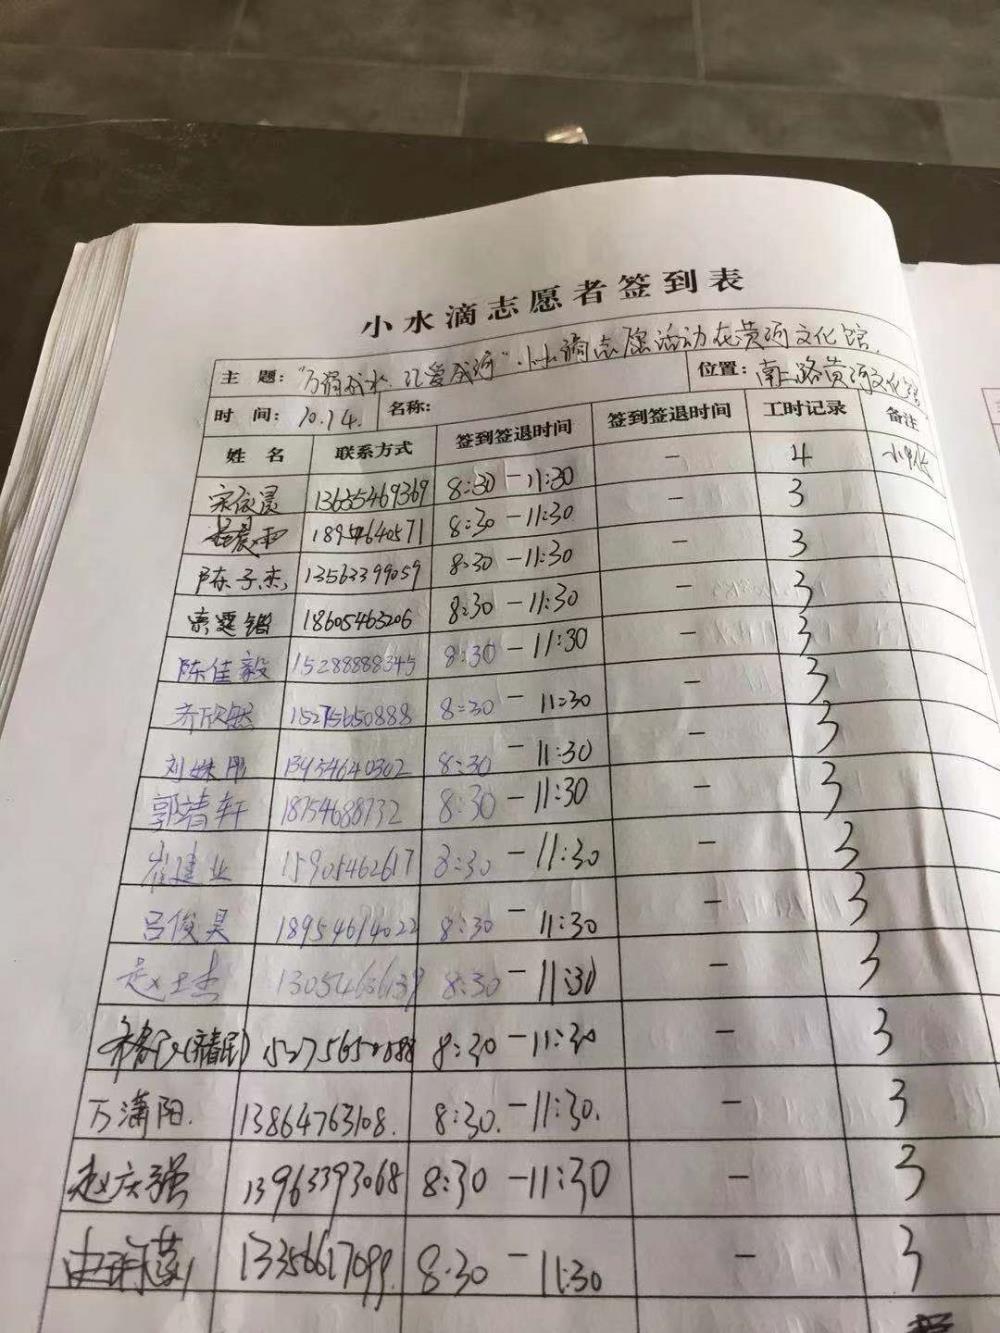 小水滴志愿者签到表
主 题： "万涓成水 汇爱成河"小水滴志愿活动在黄河文化馆. 位置： 南二路黄河文化馆
时 间： 10.14. 名称：
姓 名 联系方式 签到签退时间 签到签退时间 工时记录 备注
宋依晨 13635469369 8:30－11:30 － 4
晨雨 18954640571 8:30－11:30 － 3
陈子杰 13563399059 8:30－11:30 － 3
18605463206 8:30－11:30 － 3
陈佳毅 15288888345 8:30－11:30 － 3
齐欣然 15275650888 8:30－11:30 － 3
刘姝彤 13954640302 8:30－11:30 － 3
郭靖轩 18754688732 8:30－11:30 － 3
崔建业 15905462617 8:30－11:30 － 3
吕俊昊 18954614022 8:30－11:30 － 3
赵士杰 13054636139 8:30－11:30 － 3
15275650888 8:30－11:30 － 3
万潇阳. 13864763108. 8:30.－11:30. － 3
赵庆强 13963393068 8:30－11:30 － 3
13356617099. 8:30－11:30 － 3